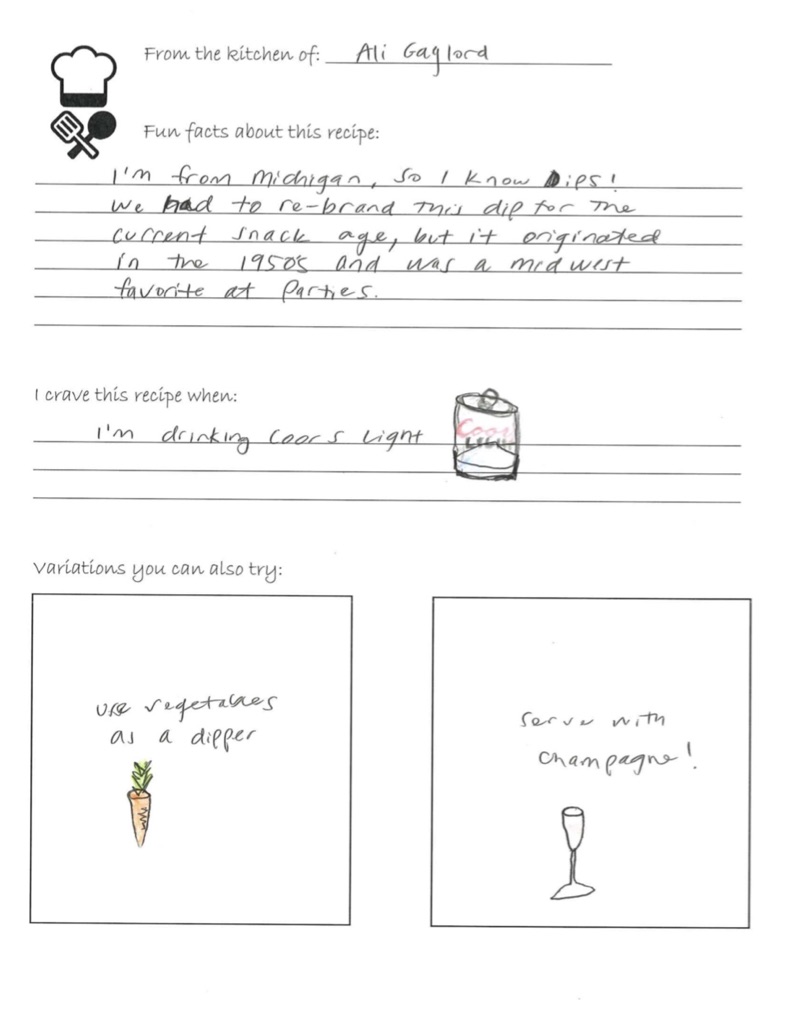 From the kitchen of: Ali Gaylord
Fun facts about this recipe:
I'm from Michigan, so I know Dips!
We had to re-brand this dip for the
current snack age, but it originated
in the 1950's and was a midwest
favorite at parties.
I crave this recipe when:
I'm drinking Coors Light
Coors
LIGHT
Variations you can also try:
use vegetables
as a dipper
serve with
champagne!